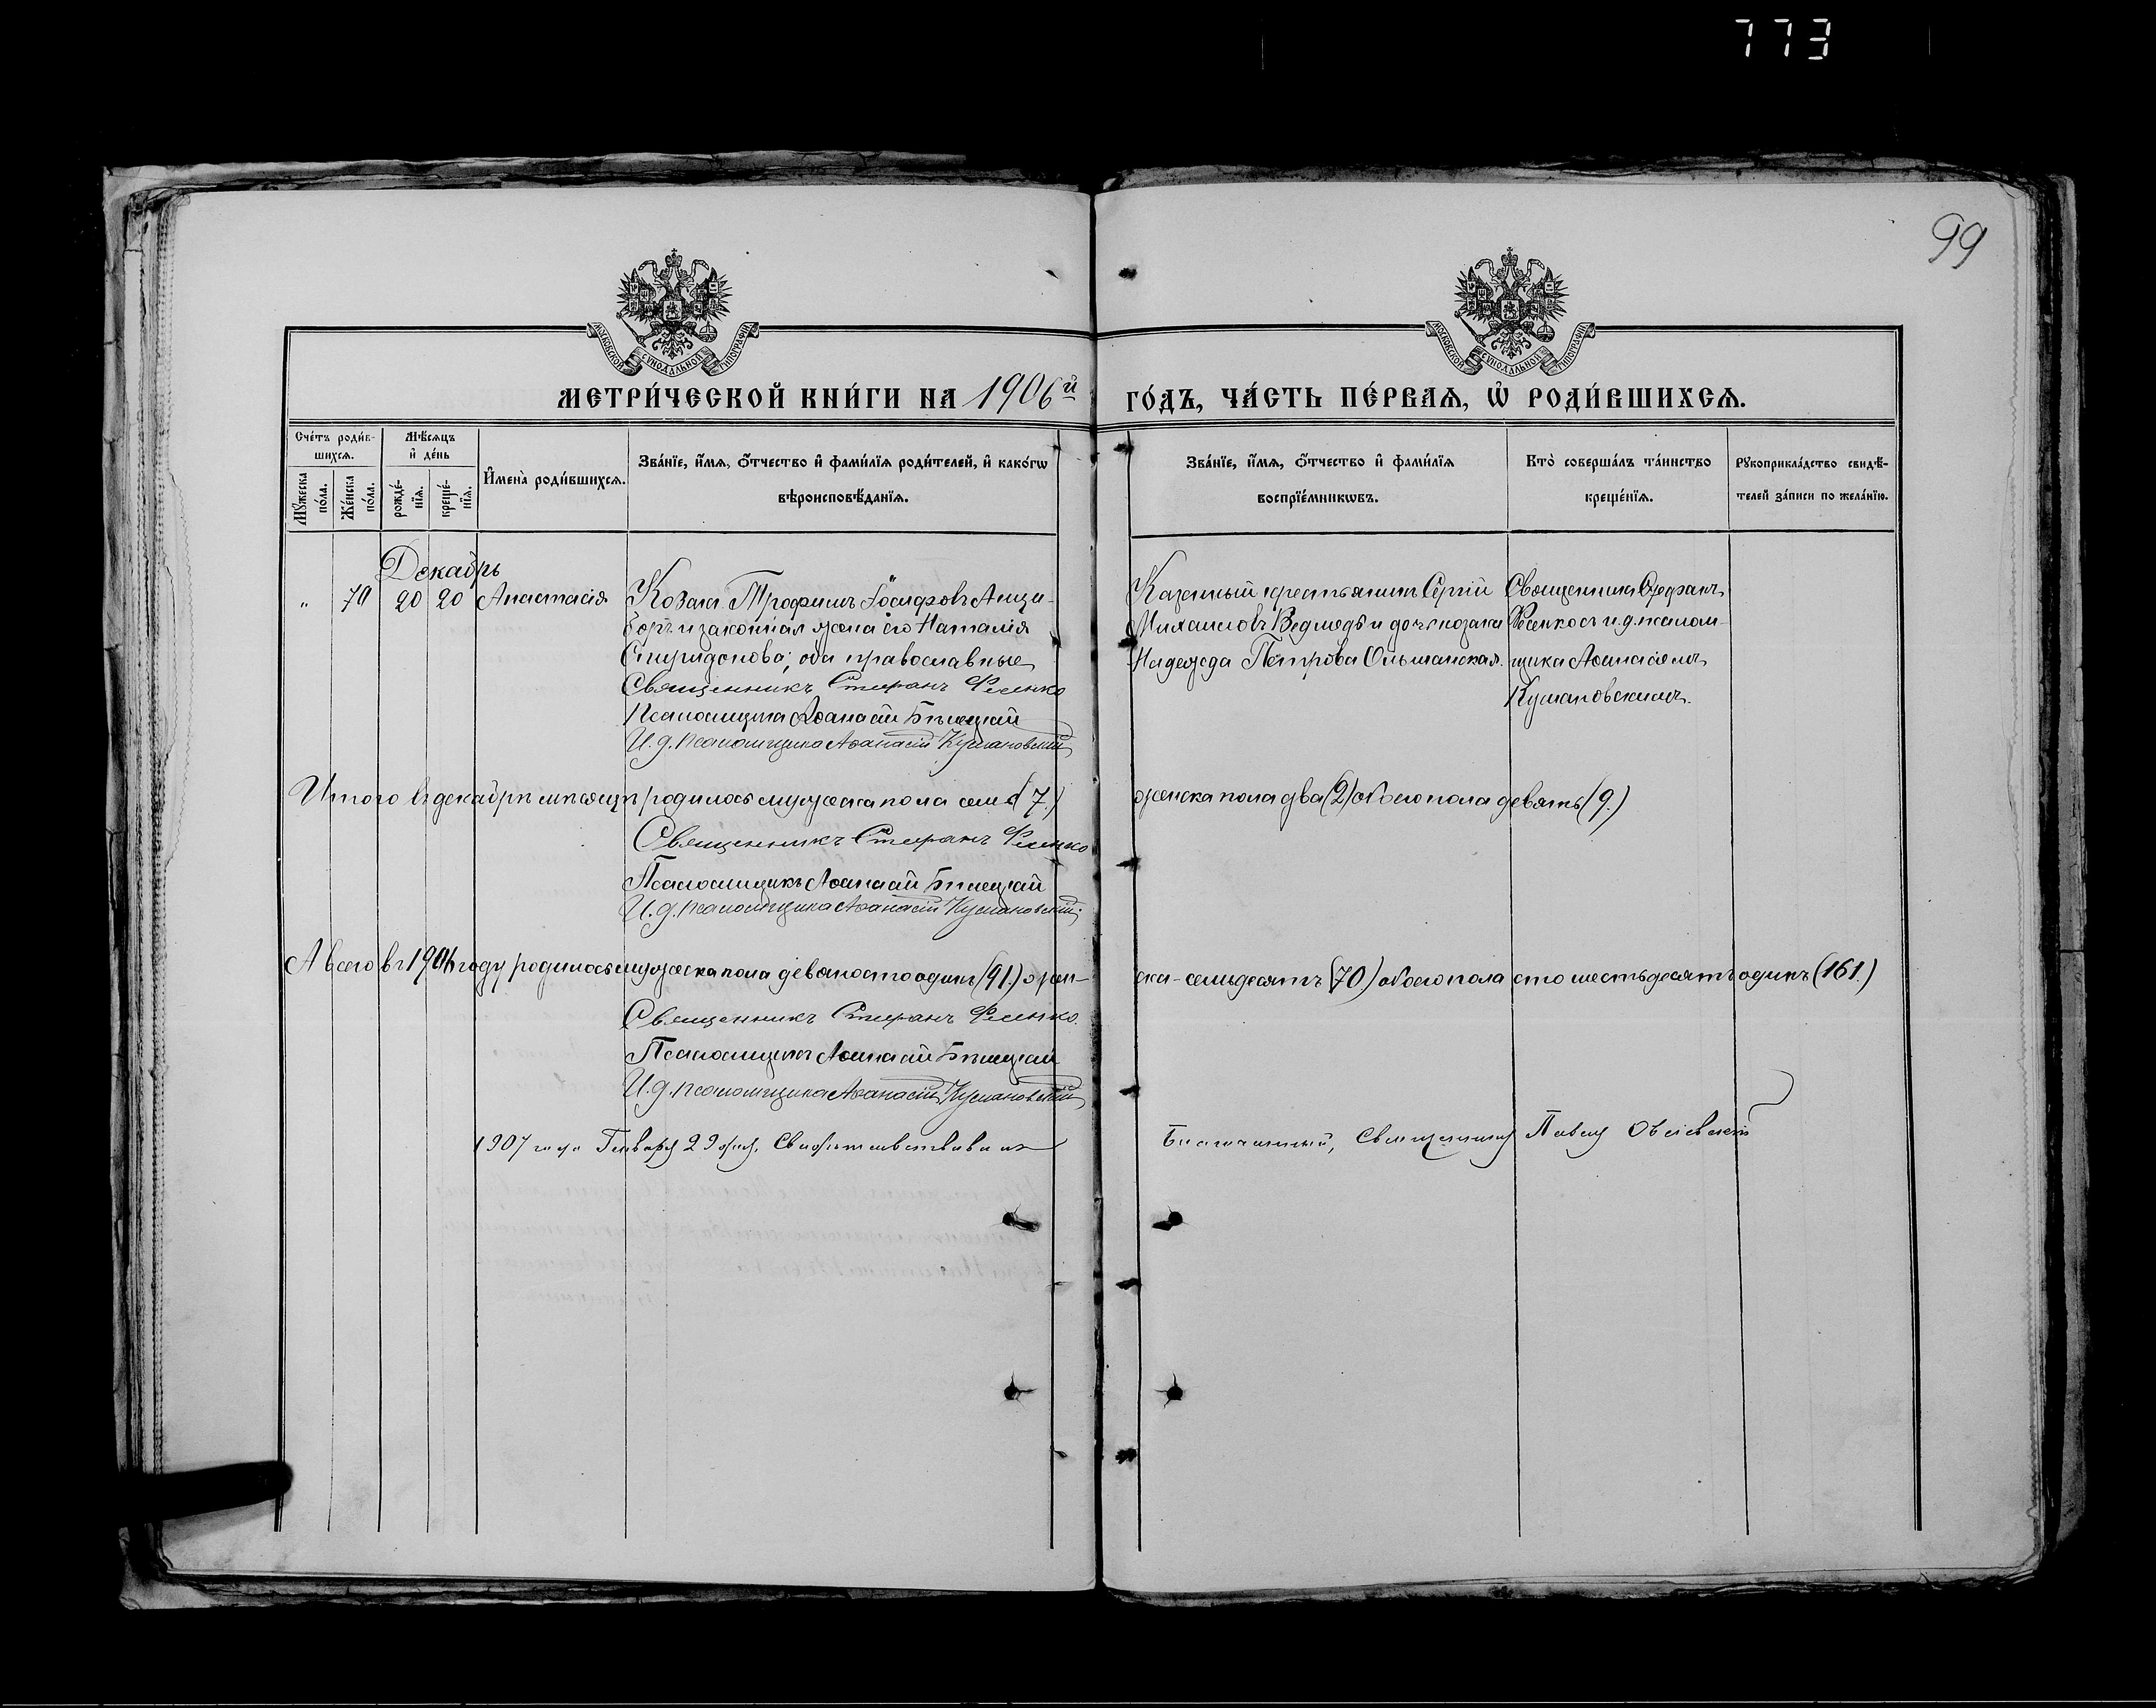 773
99
МОСКОВСКОЙ СѴНОДАЛЬНОЙ ТИПОГРАФІИ
МОСКОВСКОЙ СѴНОДАЛЬНОЙ ТИПОГРАФІИ
МЕТРИ́ЧЕСКОЙ КНИ́ГИ НА 1906й ГО́ДЪ, ЧА́СТЬ ПЕ́РВАѦ, Ѡ҆ РОДИ́ВШИХСѦ.
Сче́тъ роди́в-
шихсѧ.
Мѣ́сѧцъ
и҆ де́нь
Мꙋ́жеска
по́ла.
Же́нска
по́ла.
рожде́-
нїѧ.
креще́-
нїѧ.
И҆мена̀ роди́вшихсѧ.
Зва́нїе, и҆́мѧ, ѻ҆́тчество и҆ фами́лїѧ роди́телей, и҆ како́гѡ
вѣроисповѣ́данїѧ.
Зва́нїе, и҆́мѧ, ѻ҆́тчество и҆ фами́лїѧ
воспрїе́мникѡвъ.
Кто̀ соверша́лъ та́инство
креще́нїѧ.
Рꙋкоприкла́дство свидѣ́-
телей за́писи по жела́нїю.
Декабрь
„ 70 20 20 Анастасія
Козакъ Трофимъ Іосифовъ
и законная жена его Наталія
Спиридонова; оба православные
Священникъ Стефанъ Фесенко
Псаломщикъ Аѳанасій Бѣлецкій
И. д. псаломщика Аѳанасій Кумановскій
Казенный крестьянинъ Сергій
Михаиловъ Ведмедь и дочь козака
Надежда Петрова Ольшанская.
Священникъ Стефанъ
Фесенко съ и. д. псалом-
щика Аѳанасіемъ
Кумановскимъ.
Итого въ декабрѣ мѣсяцѣ родилось мужеска пола семь (7.) женска пола два (2) обоего пола девять (9.)
Священникъ Стефанъ Фесенко
Псаломщикъ Аѳанасій Бѣлецкій
И. д. псаломщика Аѳанасій Кумановскій
А всего въ 1906 году родилось мужеска пола девяносто одинъ (91.) жен-
ска - семьдесятъ (70) обоего пола сто шестьдесятъ одинъ (161.)
Священникъ Стефанъ Фесенко.
Псаломщикъ Аѳанасій Бѣлецкій
И. д. псаломщика Аѳанасій Кумановскій
1907 года Генваря 29 дня,
Благочинный, Священникъ Павелъ